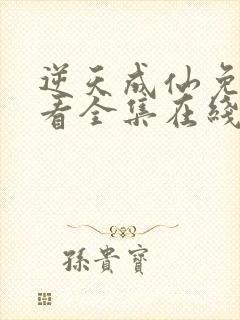 逆天成仙免
看全集在綫
孫貴寶